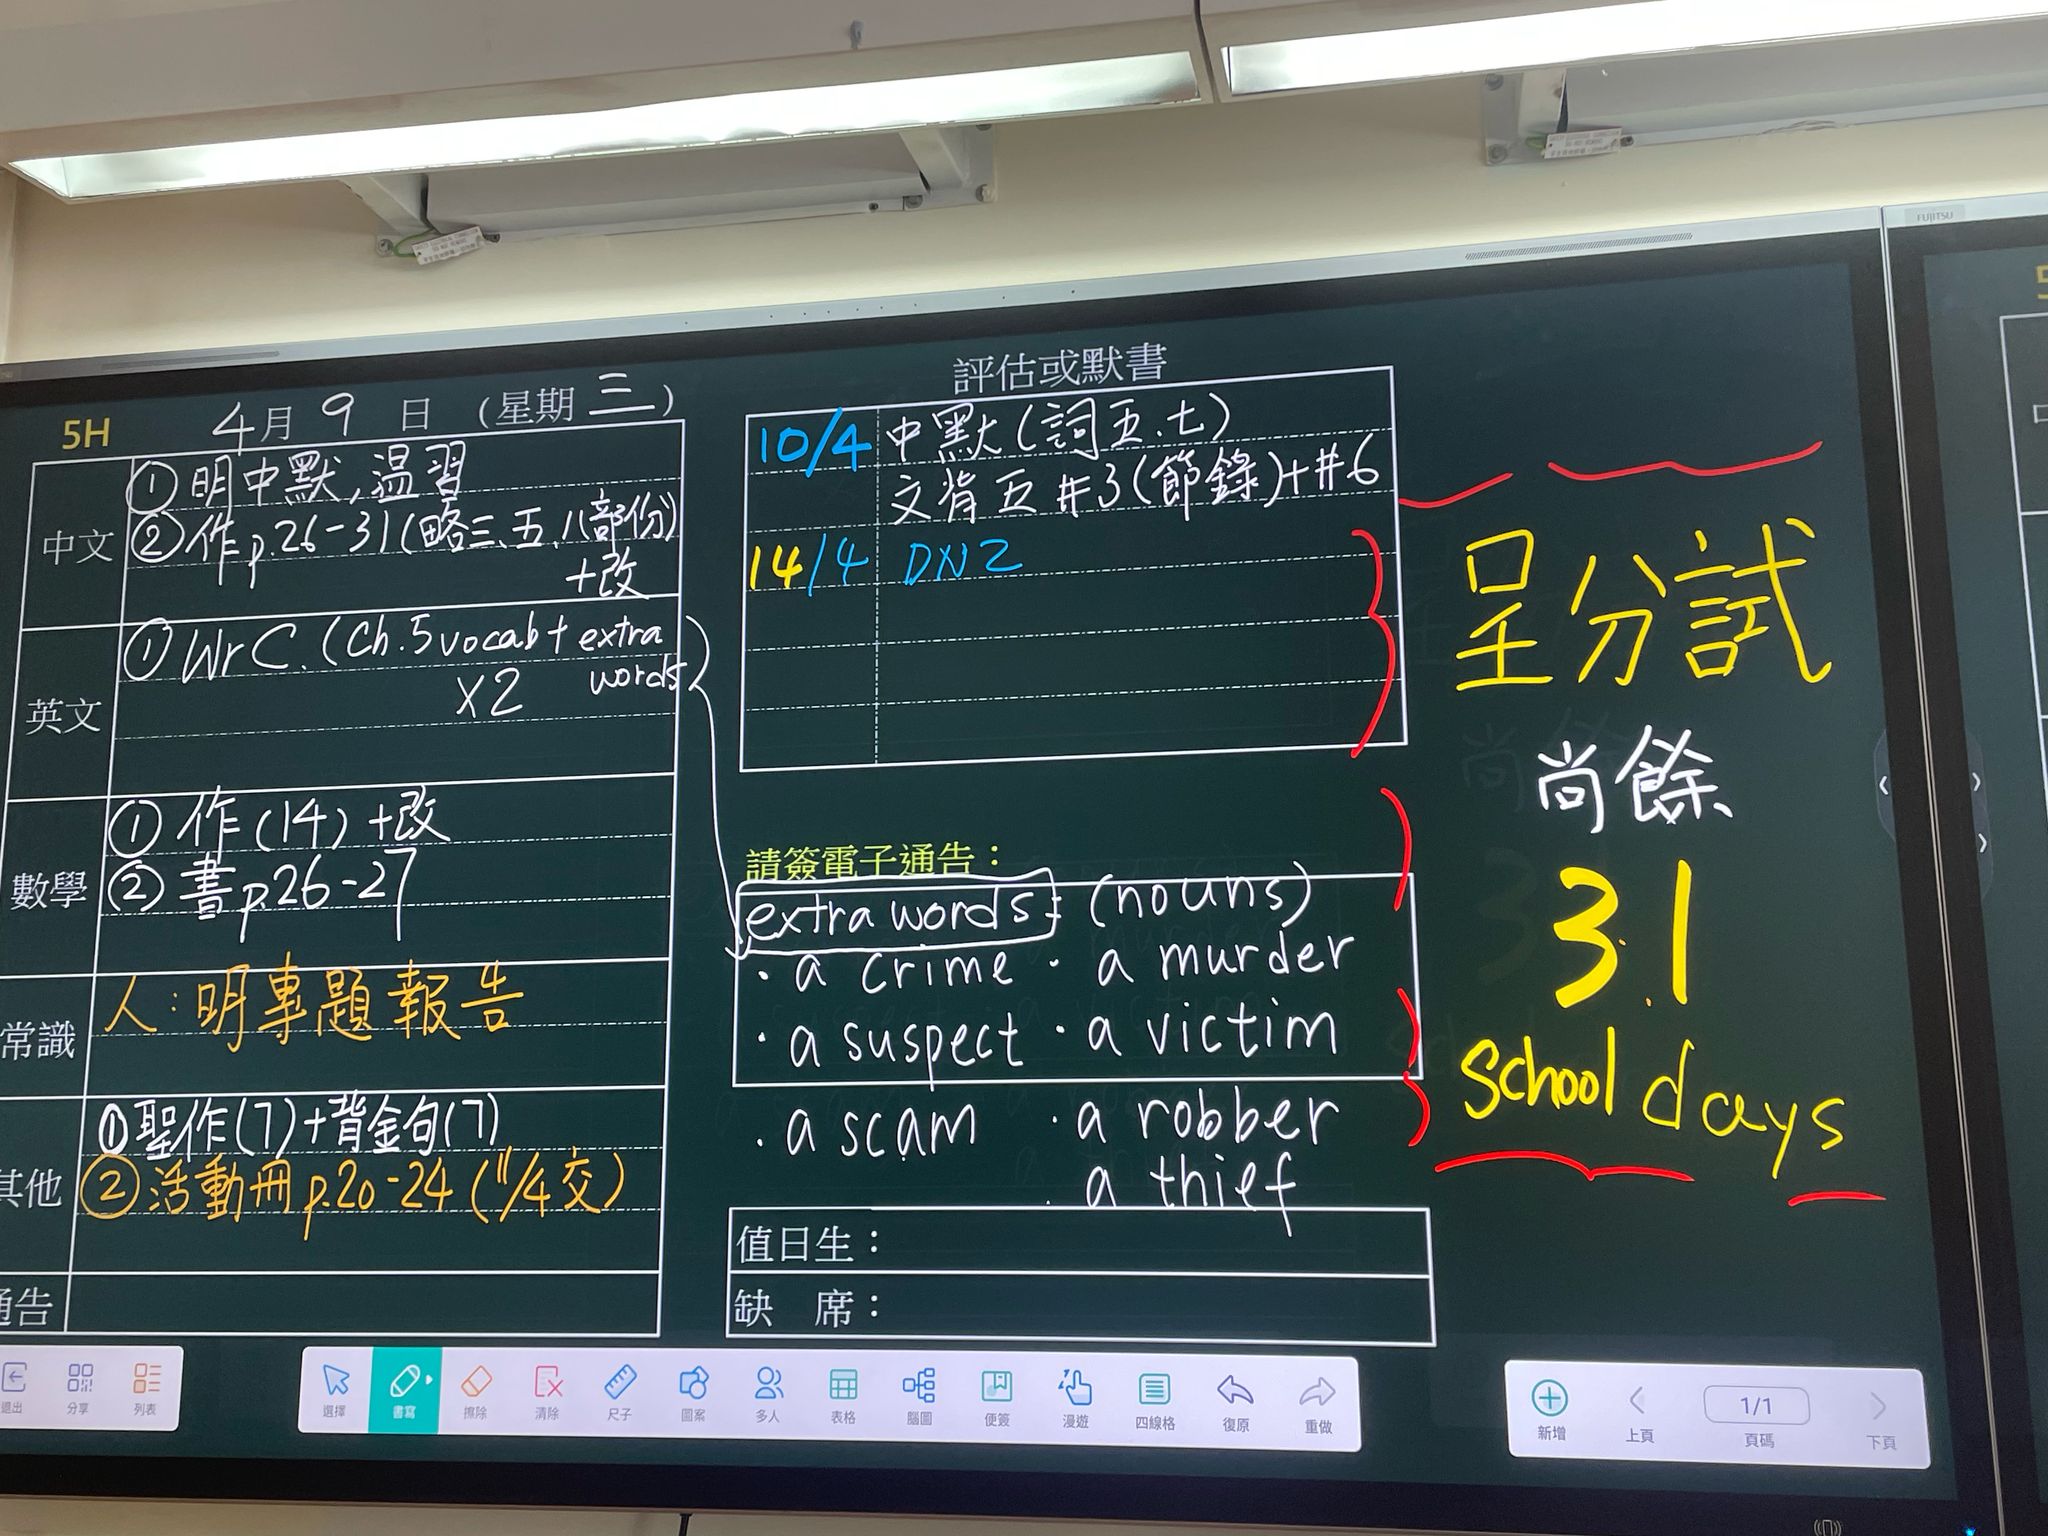 FUJITSU
5H 4月 9 日 (星期 三)
中文
① 明中默,温習
② 作 p.26-31 (略三、五、八部份)
+改
英文
① Wr C. (Ch.5 vocab + extra words)
X2
數學
① 作 (14) +改
② 書 p.26-27
常識
人：明專題報告
其他
① 聖作(7)+背金句(7)
② 活動冊 p.20-24 (11/4 交)
通告
評估或默書
10/4 中默 (詞五.七)
文背五 #3 (節錄)+#6
14/4 DN2
請簽電子通告：
extra words: (nouns)
· a crime · a murder
· a suspect · a victim
· a scam · a robber
· a thief
值日生：
缺 席：
呈分試
尚餘
31
school days
退出 分享 列表
選擇 書寫 擦除 清除 尺子 圖案 多人 表格 腦圖 便簽 漫遊 四線格 復原 重做
新增 上頁 1/1 頁碼 下頁